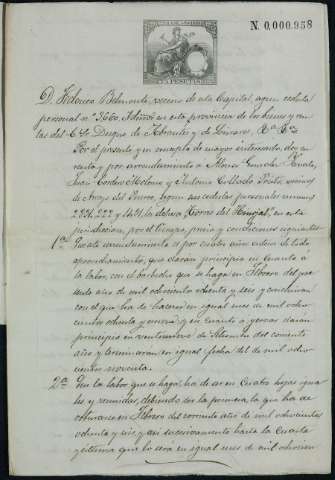 N. 0,000,958
D. Federico Belmonte, vecino de esta Capital, según cédula
personal nº 3,660, Admor en esta provincia de los bienes y ren
tas del Duque de Abrantes y de Linares, &ª &ª
Por el presente y en concepto de mayor entiendo, doy en
renta y por arrendamiento a
Juan Cordero y Antonio Collado Prieto, vecinos
de Arroyo del Puerco, según sus cédulas personales números
2221, 222 y 1431, la dehesa en esta
jurisdicción, por el tiempo, precio y condiciones siguientes
1ª Que este arrendamiento es por cuatro años de
aprovechamiento, que darán principio en cuanto á
la labor, con el barbecho que se haga en Febrero del pre
sente año de mil ochocientos ochenta y seis y concluirán
con el que ha de hacerse en igual mes de mil ocho
cientos ochenta y nueve; y en cuanto a yerbas darán
principio en veintinueve de Setiembre del corriente
año y terminarán en igual fecha del de mil ocho
cientos noventa.
2ª En la labor que se haga, ha de ser en cuatro hojas igua
les y reunidas, debiendo ser la primera, la que ha de
en Febrero del corriente año de mil ochocientos
ochenta y seis, y así sucesivamente hasta la cuarta
y última que lo será en igual mes de mil ochocien